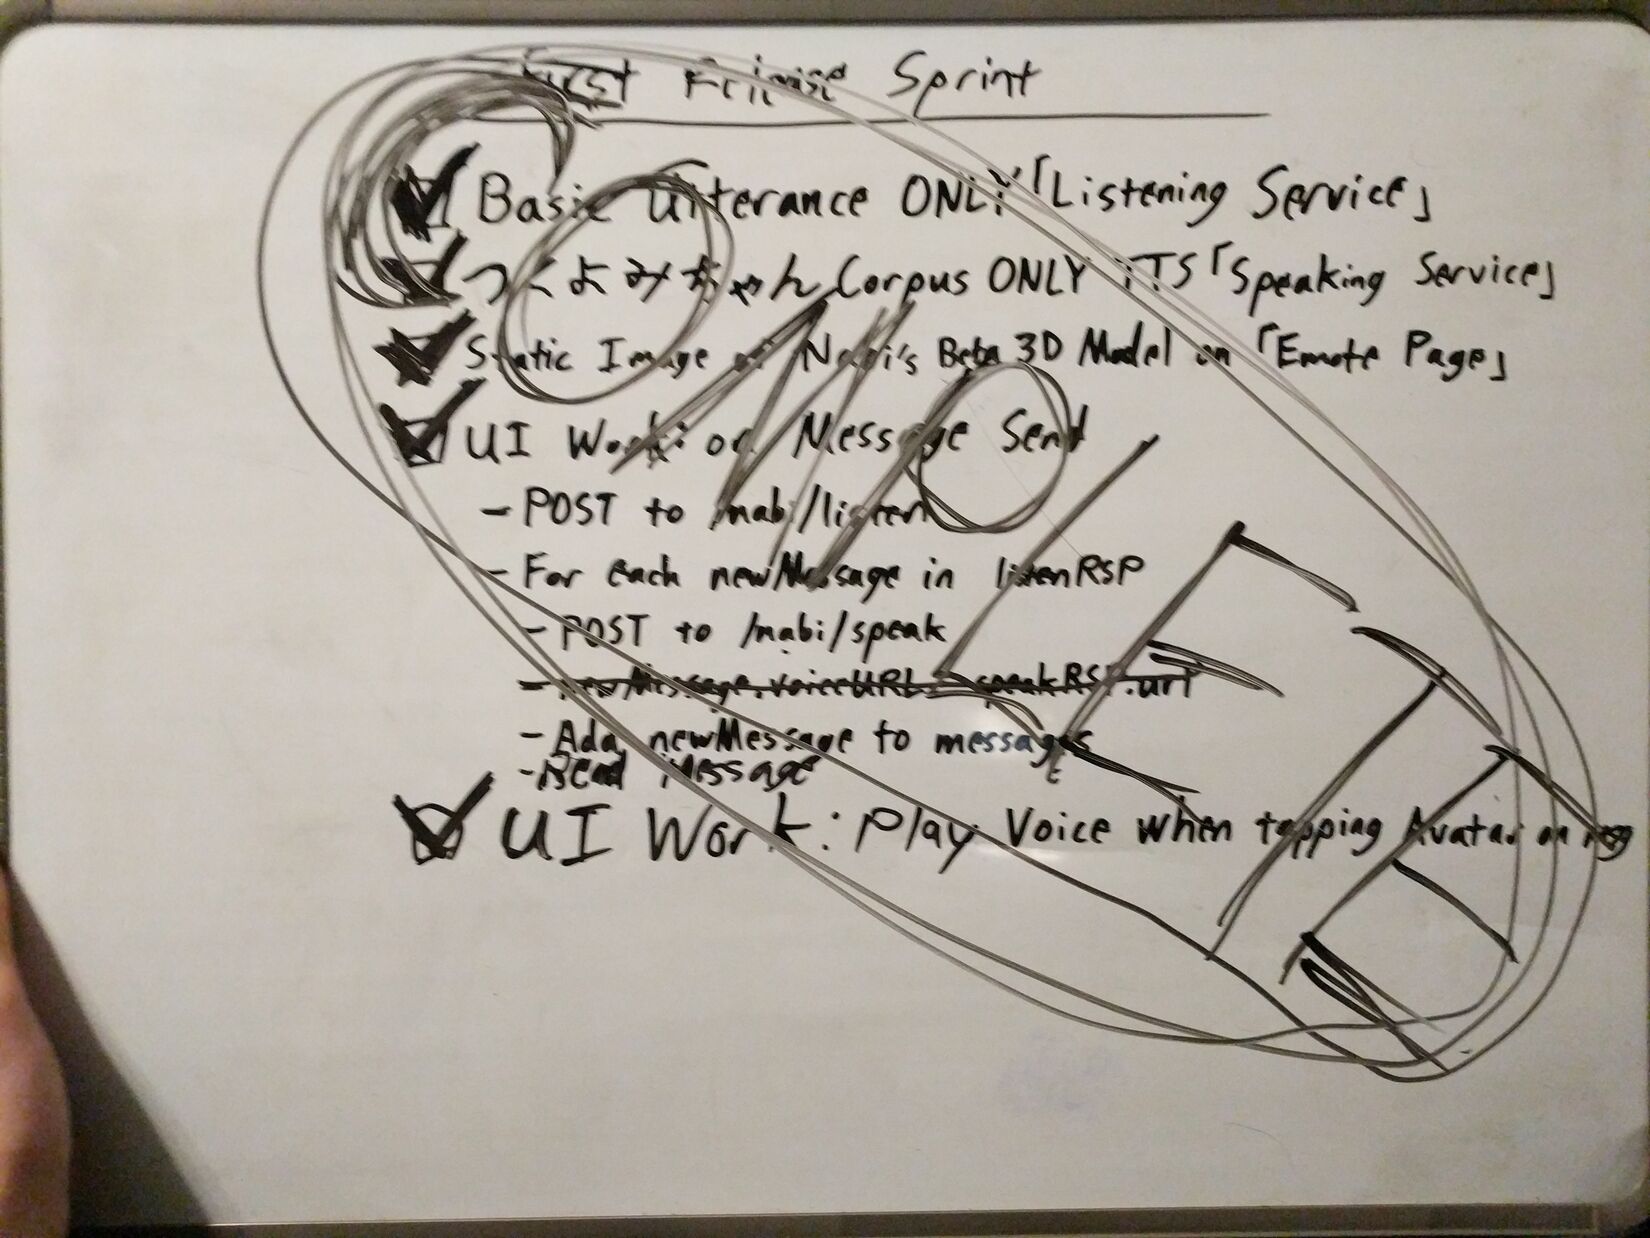 First Sprint
Basic Utterance ONLY「Listening Service」
つくよみちゃん Corpus ONLY TTS「Speaking Service」
Static Image of Nabi's Beta 3D Model on「Emote Page」
UI Work: on Message Send
- POST to /nabi/listen
- For each newMessage in listenRSP
- POST to /nabi/speak
- newMessage.voiceURL = speakRSP.url
- Add newMessage to messages
- Read Message
UI Work: Play Voice when tapping Avatar on msg
COMPLETED